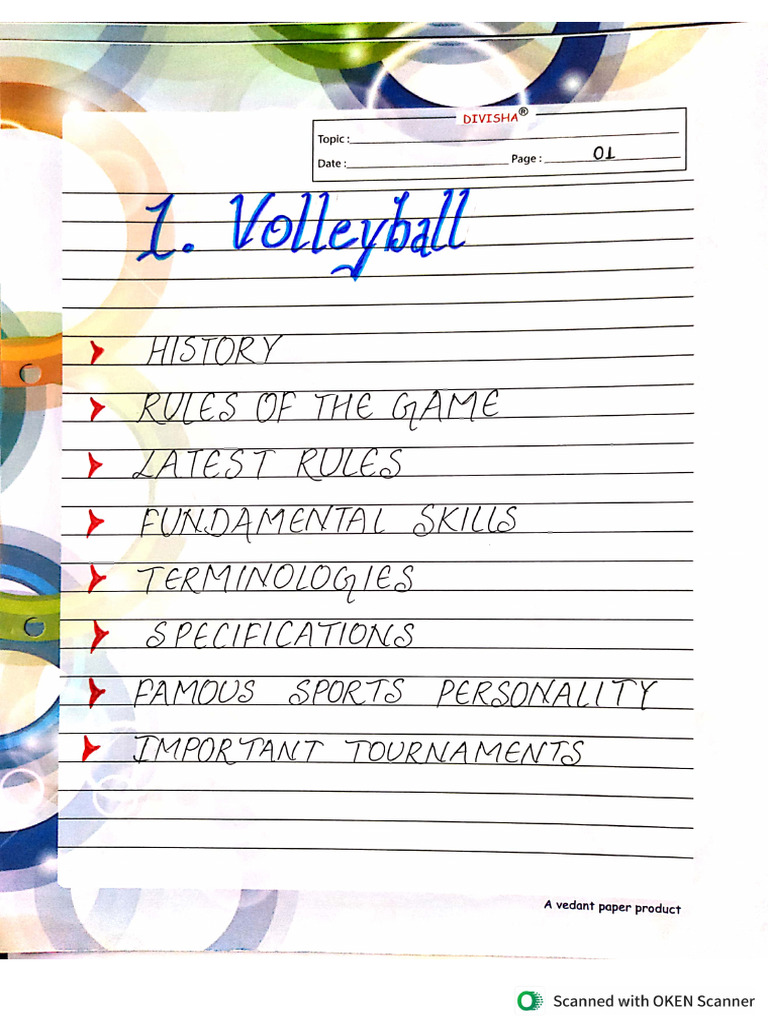 DIVISHA®
Topic :
Date : Page : 01
1. Volleyball
HISTORY
RULES OF THE GAME
LATEST RULES
FUNDAMENTAL SKILLS
TERMINOLOGIES
SPECIFICATIONS
FAMOUS SPORTS PERSONALITY
IMPORTANT TOURNAMENTS
A vedant paper product
Scanned with OKEN Scanner